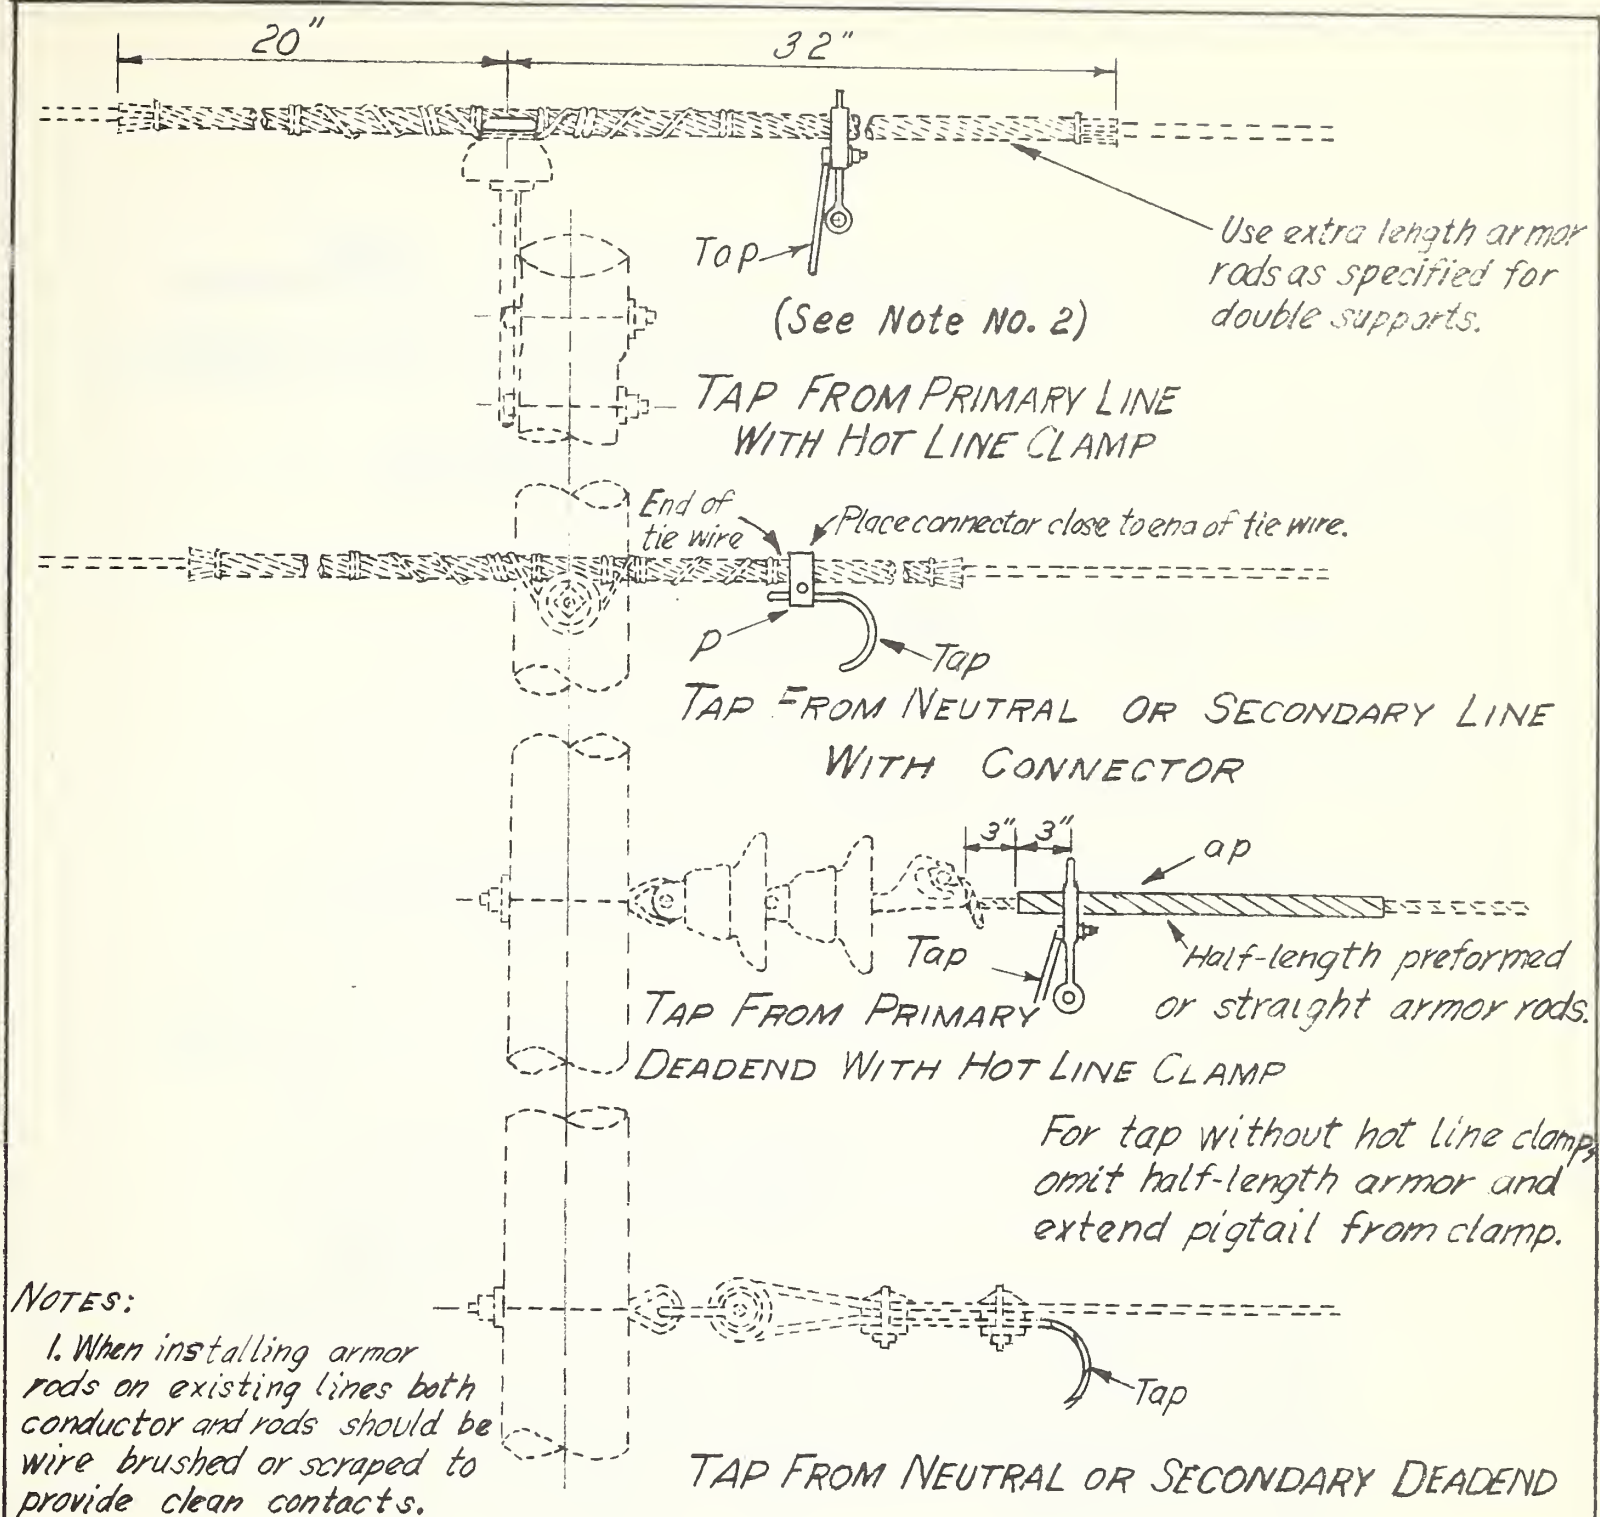 20" 32"
Tap
Use extra length armor
rods as specified for
double supports.
(See Note No. 2)
TAP FROM PRIMARY LINE
WITH HOT LINE CLAMP
End of
tie wire
Place connector close to end of tie wire.
p
Tap
TAP FROM NEUTRAL OR SECONDARY LINE
WITH CONNECTOR
3" 3"
ap
Tap
Half-length preformed
or straight armor rods.
TAP FROM PRIMARY
DEADEND WITH HOT LINE CLAMP
For tap without hot line clamp,
omit half-length armor and
extend pigtail from clamp.
Tap
TAP FROM NEUTRAL OR SECONDARY DEADEND
NOTES:
1. When installing armor
rods on existing lines both
conductor and rods should be
wire brushed or scraped to
provide clean contacts.